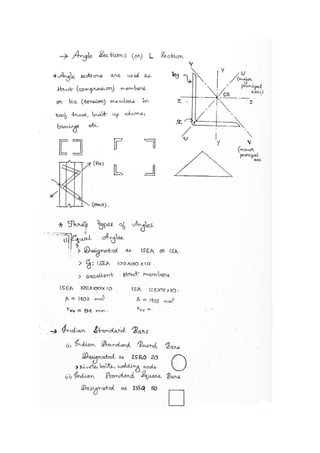 → Angle Sections (or) L Section
* Angle sections are used as
strut (compression) members
or tie (tension) members in
roof truss, built up columns,
bracings etc.
Y
U
(major
principal
axis)
CG
Z
Z
SC
U
Y
V
(minor
principal
axis
(tie)
(strut).
* Three types of Angles
(i) Equal Angles
> Designated as ISEA or ISA.
> Eg: ISEA 100X100 X 10.
> excellent strut members
ISEA 100X100X10
ISA 125X75X10.
A = 1902 mm²
A = 1902 mm²
rvv = mm.
rvv =
→ Indian Standard Bars
(i) Indian Standard Round Bars
Designated as ISRO 20
> Rivets, bolts, welding rods
(ii) Indian Standard Square Bars
Designated as ISSQ 10